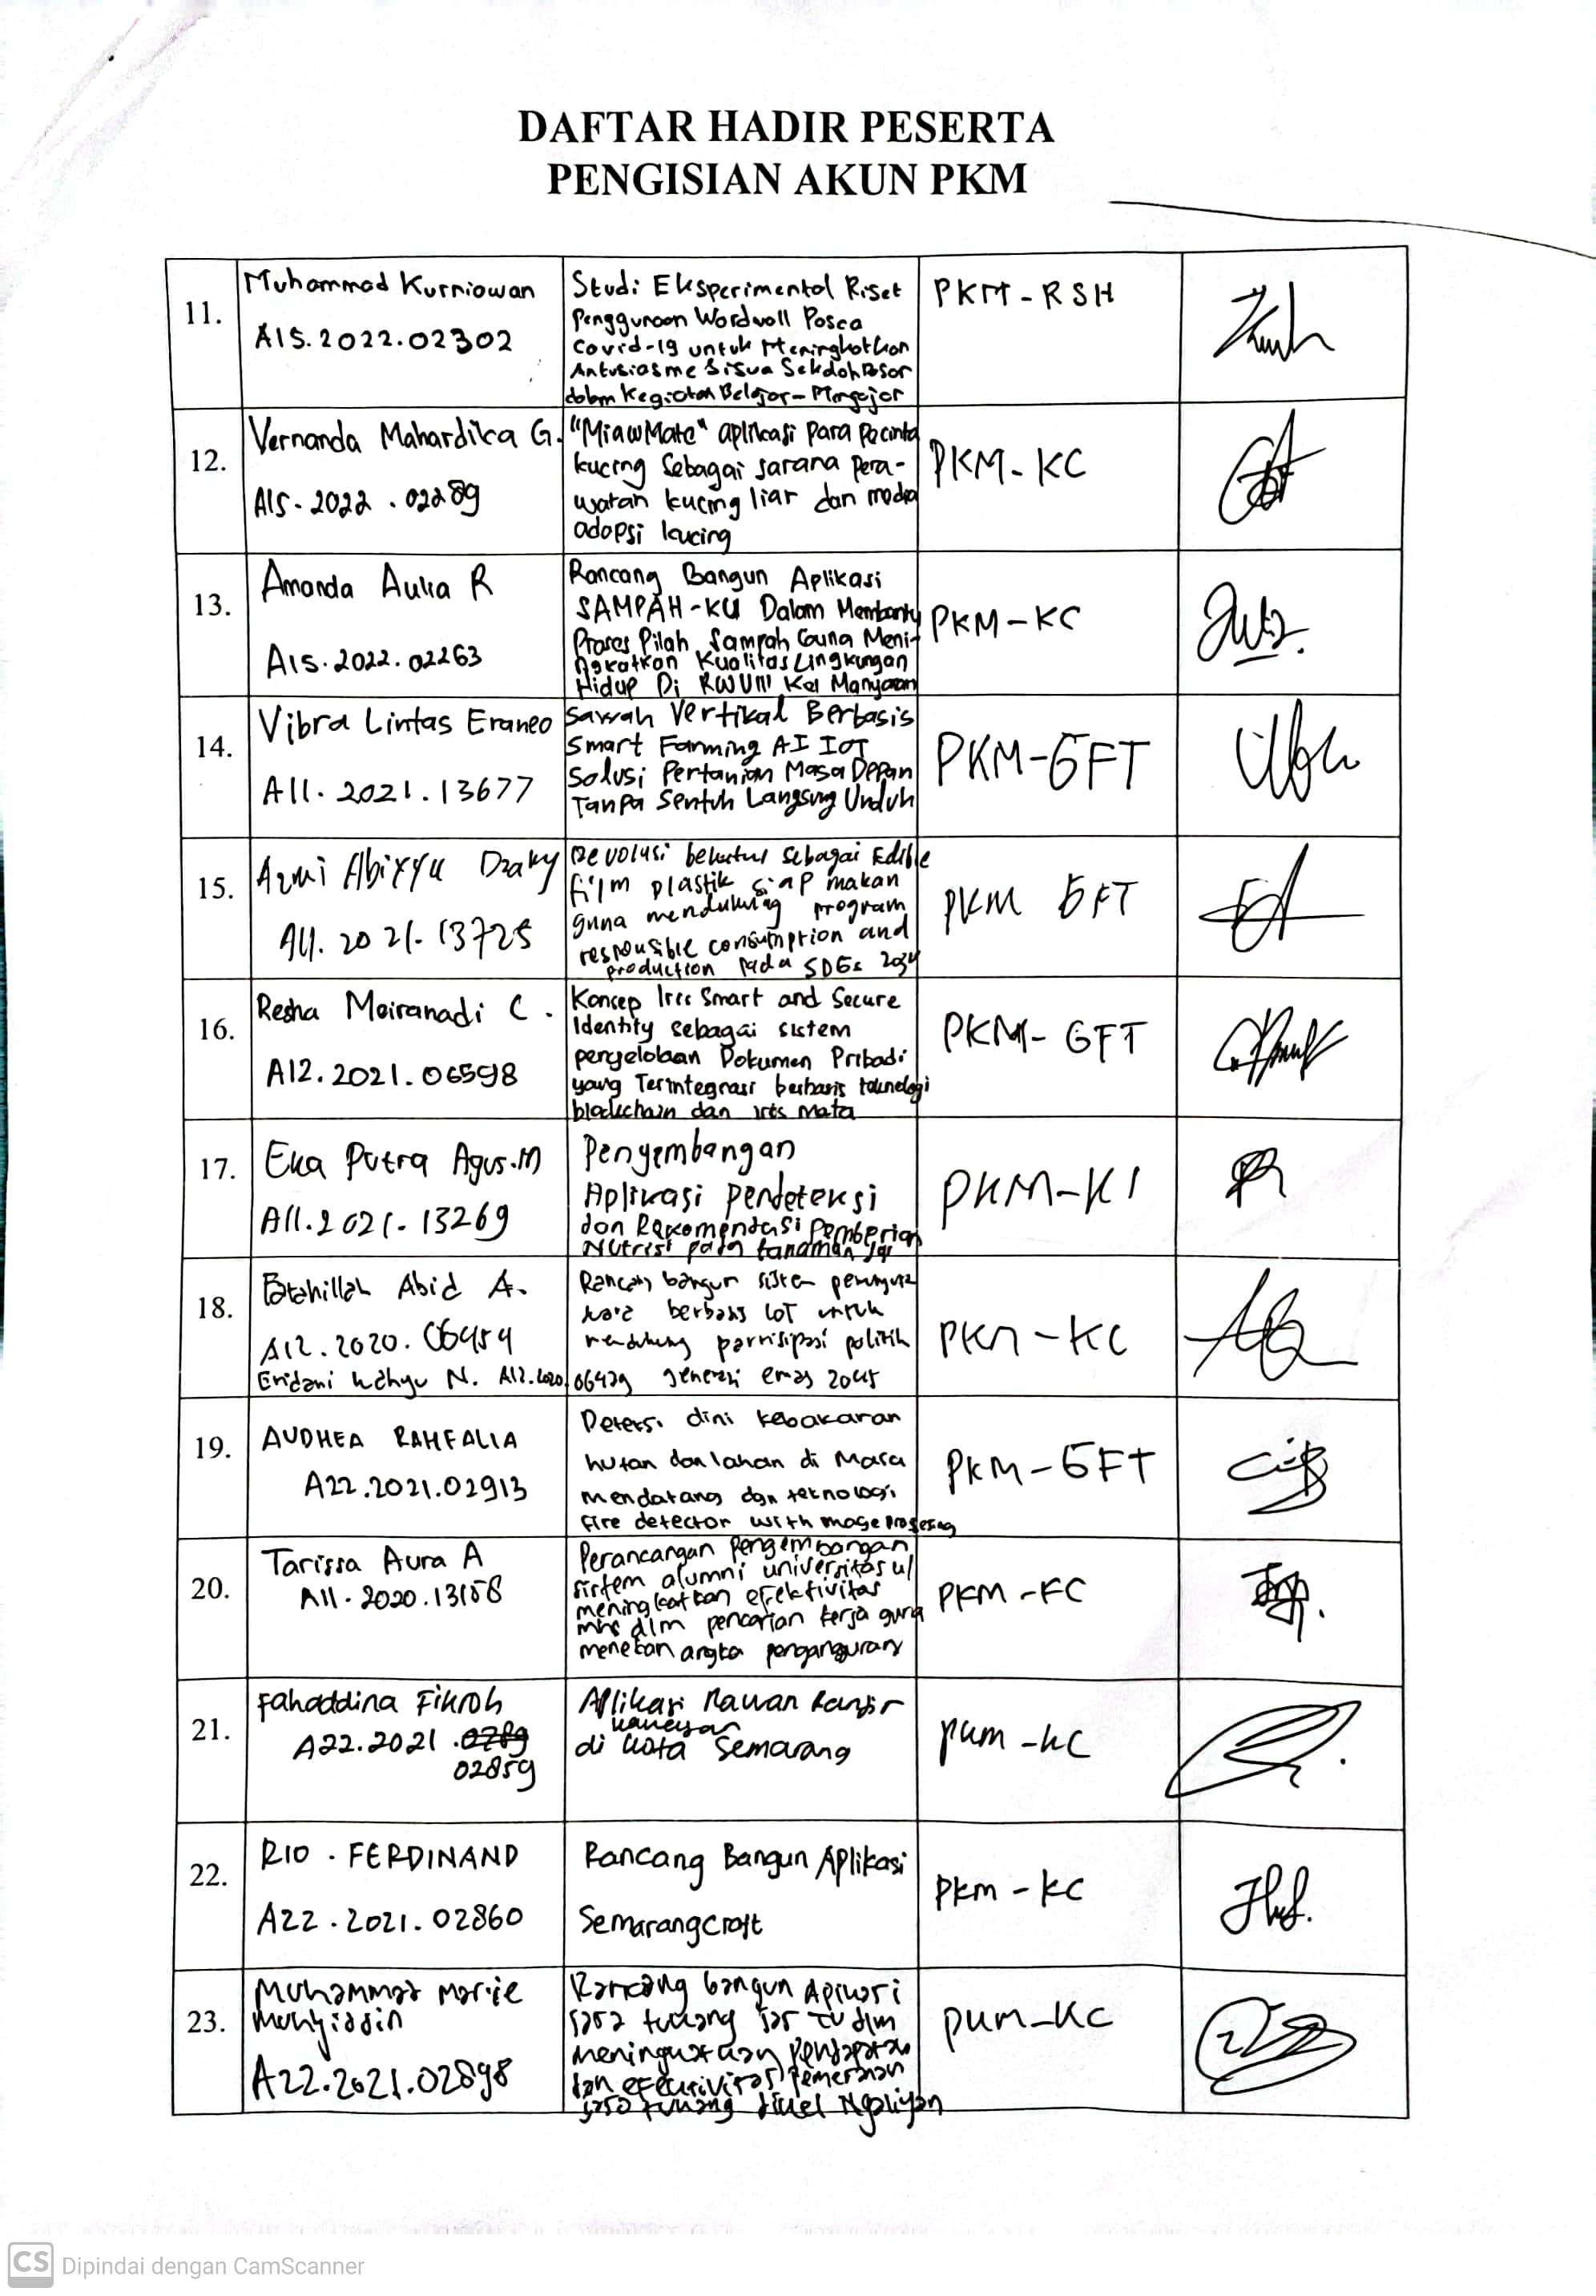 DAFTAR HADIR PESERTA
PENGISIAN AKUN PKM
11.
Muhammad Kurniawan
A15.2022.02302
Studi Eksperimental Riset
Penggunaan Wordwall Pasca
Covid-19 untuk Meningkatkan
Antusiasme Siswa Sekolah Dasar
dalam Kegiatan Belajar-Mengajar
PKM-RSH
12.
Vernanda Mahardika G.
A15.2022.02289
"MiawMate" aplikasi para pecinta
kucing sebagai sarana pera-
watan kucing liar dan media
adopsi kucing
PKM-KC
13.
Amanda Aulia R
A15.2022.02263
Rancang Bangun Aplikasi
SAMPAH-KU Dalam Membantu
Proses Pilah Sampah Guna Meni-
ngkatkan Kualitas Lingkungan
Hidup Di RW VIII Kel Manyaran
PKM-KC
14.
Vibra Lintas Eraneo
A11.2021.13677
Sawah Vertikal Berbasis
Smart Farming AI IoT
Solusi Pertanian Masa Depan
Tanpa Sentuh Langsung Unduh
PKM-GFT
15.
Azmi Abiyyu Dzaky
A11.2021.13725
Revolusi sebagai Edible
film plastik siap makan
guna mendukung program
responsible consumption and
production pada SDGs
PKM GFT
16.
Resha Meiranadi C.
A12.2021.06598
Konsep Iris Smart and Secure
Identity sebagai sistem
pengelolaan Dokumen Pribadi
yang Terintegrasi berbasis teknologi
blockchain dan iris mata
PKM-GFT
17.
Eka Putra Agus.M
A11.2021.13269
Pengembangan
Aplikasi Pendeteksi
dan Rekomendasi Pemberian
Nutrisi pada tanaman
PKM-KI
18.
Fatahillah Abid A.
A12.2020.06454
Eridani Wahyu N. A12.2020.06429
Rancang bangun sistem
berbasis IoT untuk
mendukung partisipasi politik
generasi emas 2045
PKM-KC
19.
AUDHEA RAHFALIA
A22.2021.02913
Deteksi dini kebakaran
hutan dan lahan di Masa
mendatang dgn teknologi
fire detector with image prosesing
PKM-GFT
20.
Tarissa Aura A
A11.2020.13158
Perancangan Pengembangan
sistem alumni universitas u/
meningkatkan efektivitas
mhs dlm pencarian kerja guna
menekan angka pengangguran
PKM-KC
21.
Fahaddina Fikroh
A22.2021.0289
02859
Aplikasi Rawan Banjir
kawasan
di kota Semarang
PKM-KC
22.
RIO . FERDINAND
A22.2021.02860
Rancang Bangun Aplikasi
Semarangcraft
PKM-KC
23.
Muhammad
Muhyiddin
A22.2021.02898
Rancang bangun Aplikasi
jasa tukang dlm
meningkatkan pendapatan
dan efektivitas pemesanan
jasa tukang dikel Ngaliyan
PKM-KC
CS Dipindai dengan CamScanner